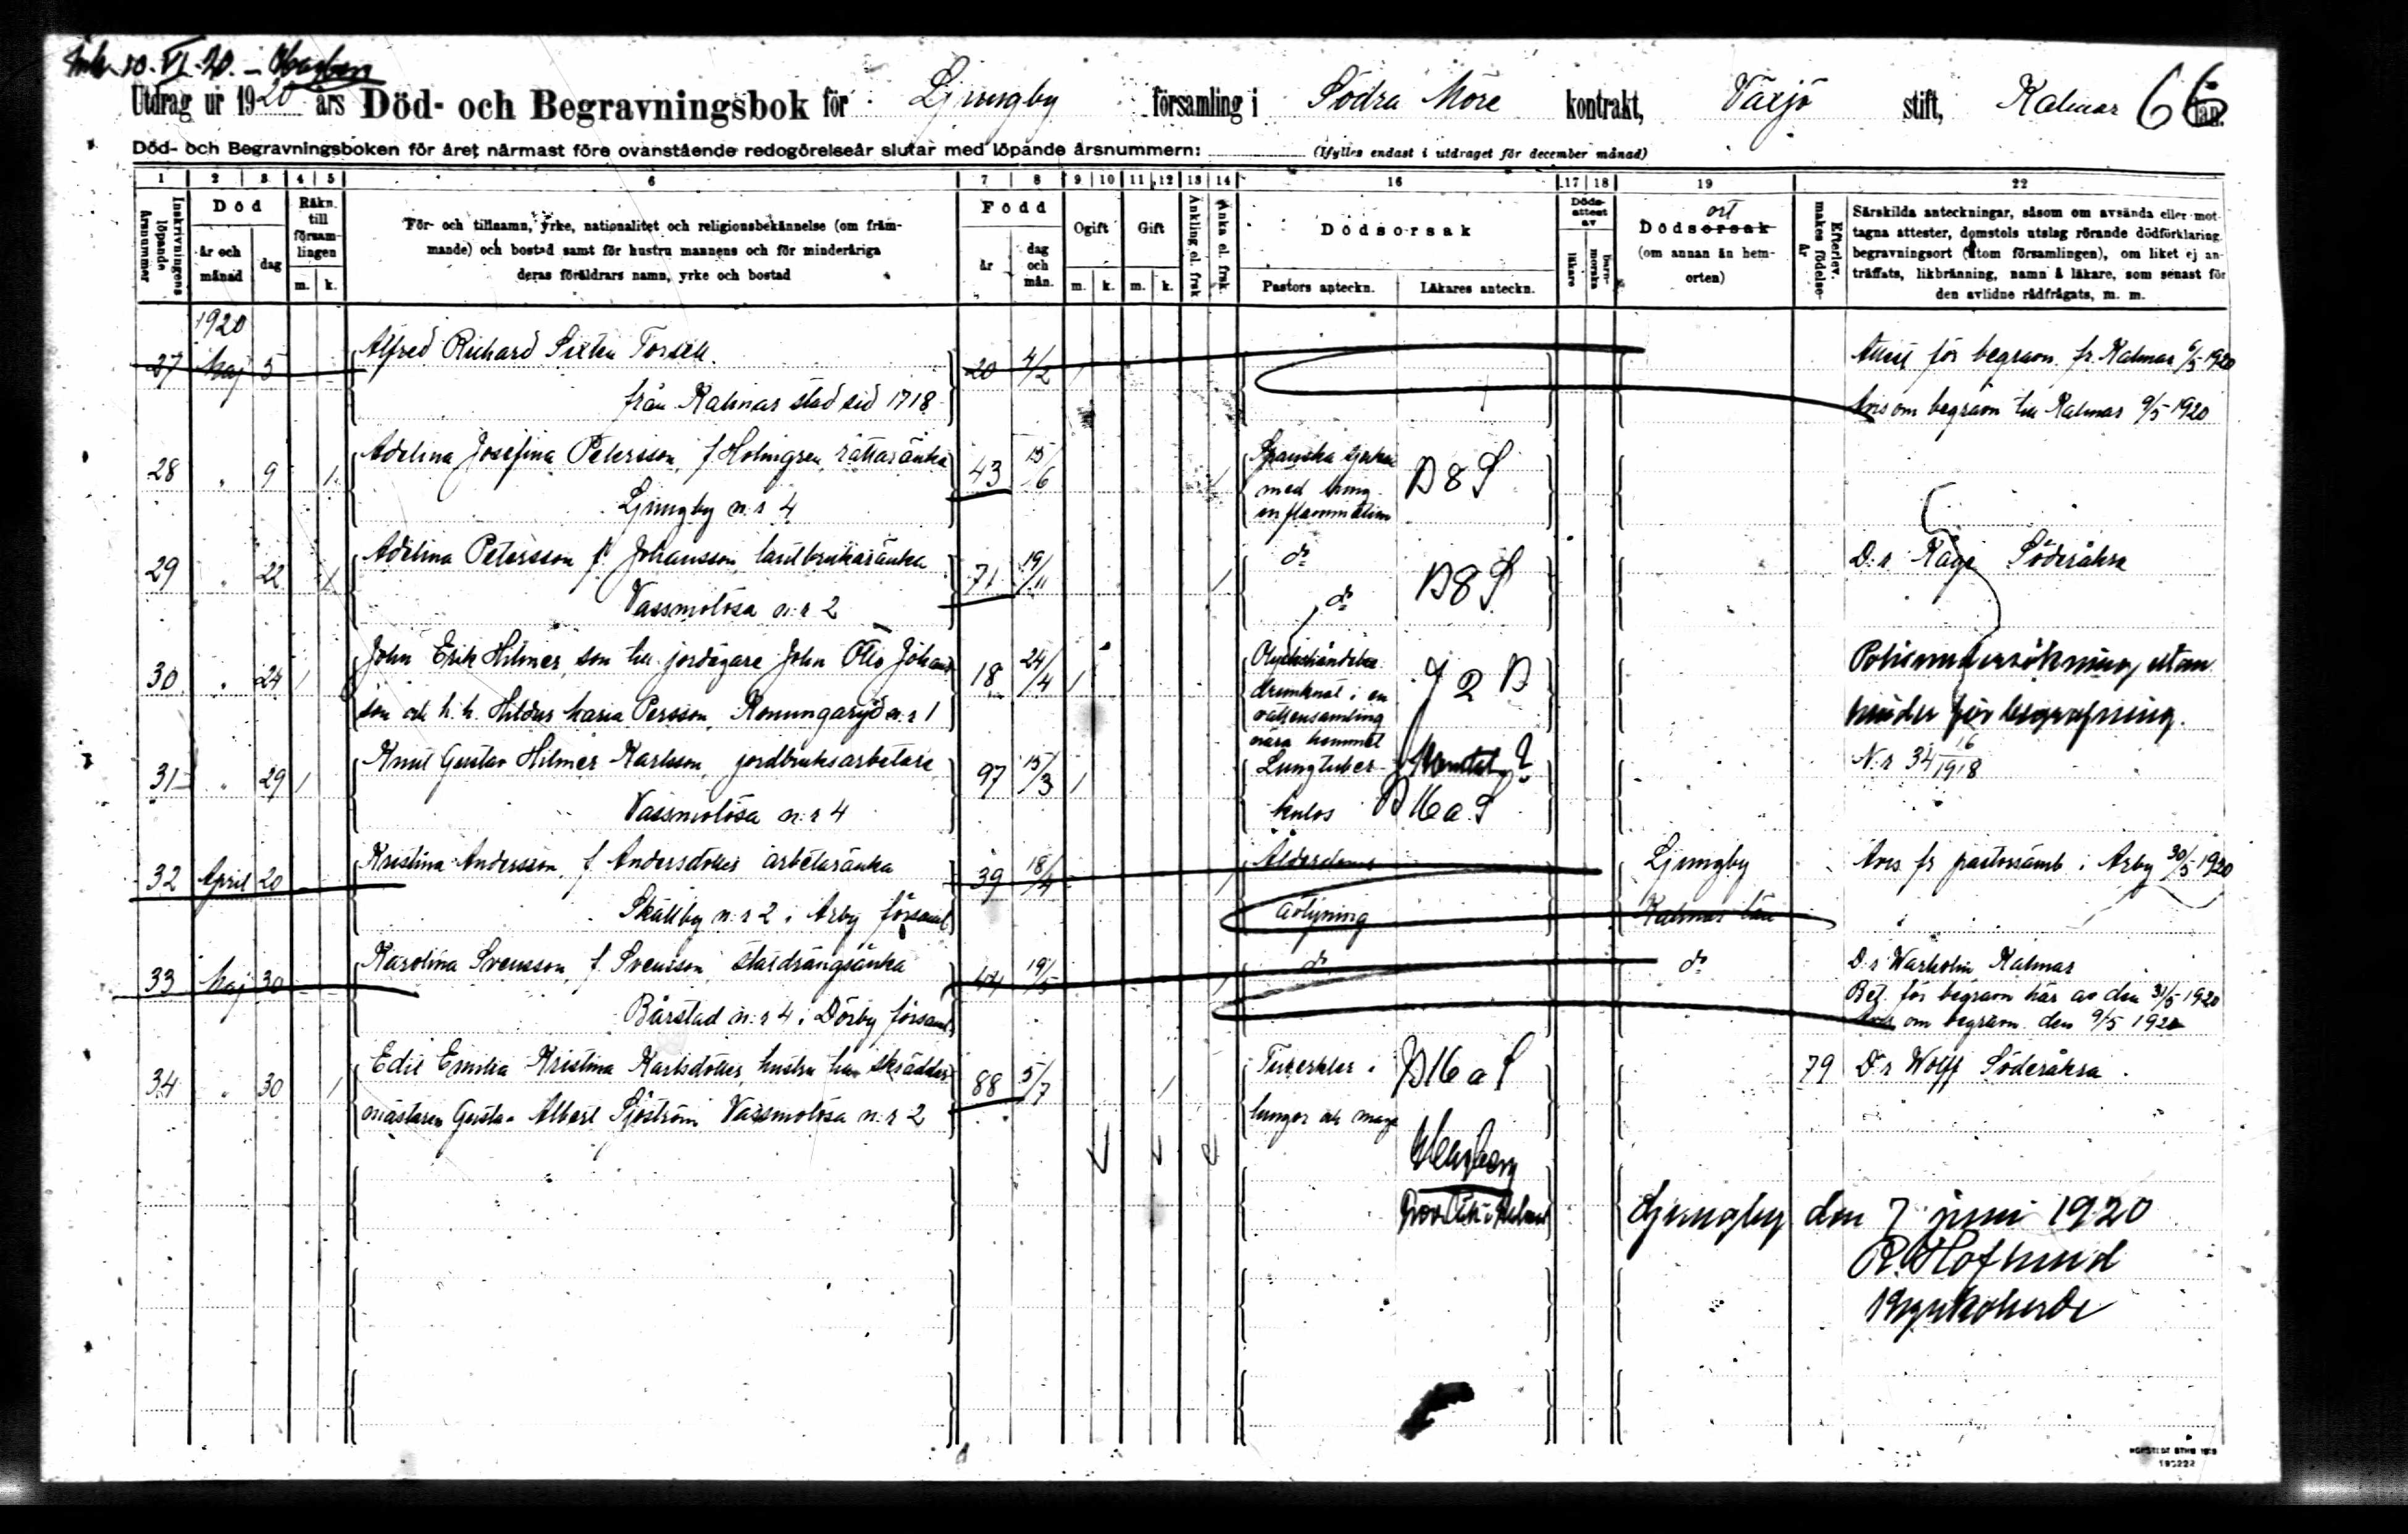 Ank. 10.VI.20. –
Utdrag ur 1920 års Död- och Begravningsbok för Ljungby församling i Södra Möre kontrakt, Växjö stift, Kalmar län. 66
Död- och Begravningsboken för året närmast före ovanstående redogörelseår slutar med löpande årsnummern: (Ifylles endast i utdraget för december månad)
1 2 3 4 5 6 7 8 9 10 11 12 13 14 16 17 18 19 22
Inskrivningens löpande årsnummer
Död
År och månad
dag
Räkn. till församlingen
m. k.
För- och tillnamn, yrke, nationalitet och religionsbekännelse (om främ-
mande) och bostad samt för hustru mannens och för minderåriga
deras föräldrars namn, yrke och bostad
Född
år
dag och mån.
Ogift
m. k.
Gift
m. k.
Änkling el. frsk.
Änka el. frsk.
Dödsorsak
Pastors anteckn. Läkares anteckn.
Dödsattest av
läkare
barnmorska
ort
Dödsorsak
(om annan än hem-
orten)
Efterlev. makes födelse-
år
Särskilda anteckningar, såsom om avsända eller mot-
tagna attester, domstols utslag rörande dödförklaring,
begravningsort (utom församlingen), om liket ej an-
träffats, likbränning, namn å läkare, som senast för
den avlidne rådfrågats, m. m.
1920
27 Maj 5 Alfred Richard Sixten Torsell. 20 4/2 1 Attest för begravn. fr. Kalmar 6/5 1920
från Kalmar stad sid 1718 Avis om begravn till Kalmar 9/5 1920
28 " 9 1 Adelina Josefina Petersson, f Holmgren, rättareänka 43 15/6 1 Spanska sjukan
Ljungby n:r 4 med lung- B 8 S
inflammation
29 " 22 1 Adelina Petersson f. Johansson, lantbrukareänka 71 19/11 1 d:o D:r Kåge Söderåkra
Vassmolösa n:r 2 d:o B 8 S
30 " 24 1 John Erik Hilmer, son till jordägare John Otto Johans- 18 24/4 1 Olyckshändelse Polisundersökning, utan
son och h. h. Hildur Maria Persson, Konungaryd n:r 1 drunknat i en J 2 B hinder för begrafning.
vattensamling
nära hemmet
31 " 29 1 Knut Gustav Hilmer Karlsson, jordbruksarbetare 97 15/3 1 Lungtuber- N:r 34 16/1918
Vassmolösa n:r 4 kulos B 16 a S
32 April 20 Kristina Andersson, f. Andersdotter arbetareänka 39 18/4 1 Ålderdoms- Ljungby Avis fr pastorsämb. i Arby 30/5 1920
Skällby n:r 2 i Arby församl. avtyning Kalmar län
33 Maj 30 Karolina Svensson, f. Svensson statdrängsänka 44 19/5 1 d:o d:o D:r Warholm Kalmar
Bårstad n:r 4 i Dörby församl. Bet. för begravn här av den 31/5 1920
Avis om begravn. den 9/5 1920
34 " 30 1 Edit Emilia Kristina Karlsdotter, hustru till skräddar- 88 5/7 1 Tuberkler i B 16 a S 79 D:r Wolff Söderåkra.
mästaren Gustav Albert Sjöström Vassmolösa n:r 2 lungor och mage
Ljungby den 7 juni 1920
R. Hoflund
Kyrkoherde